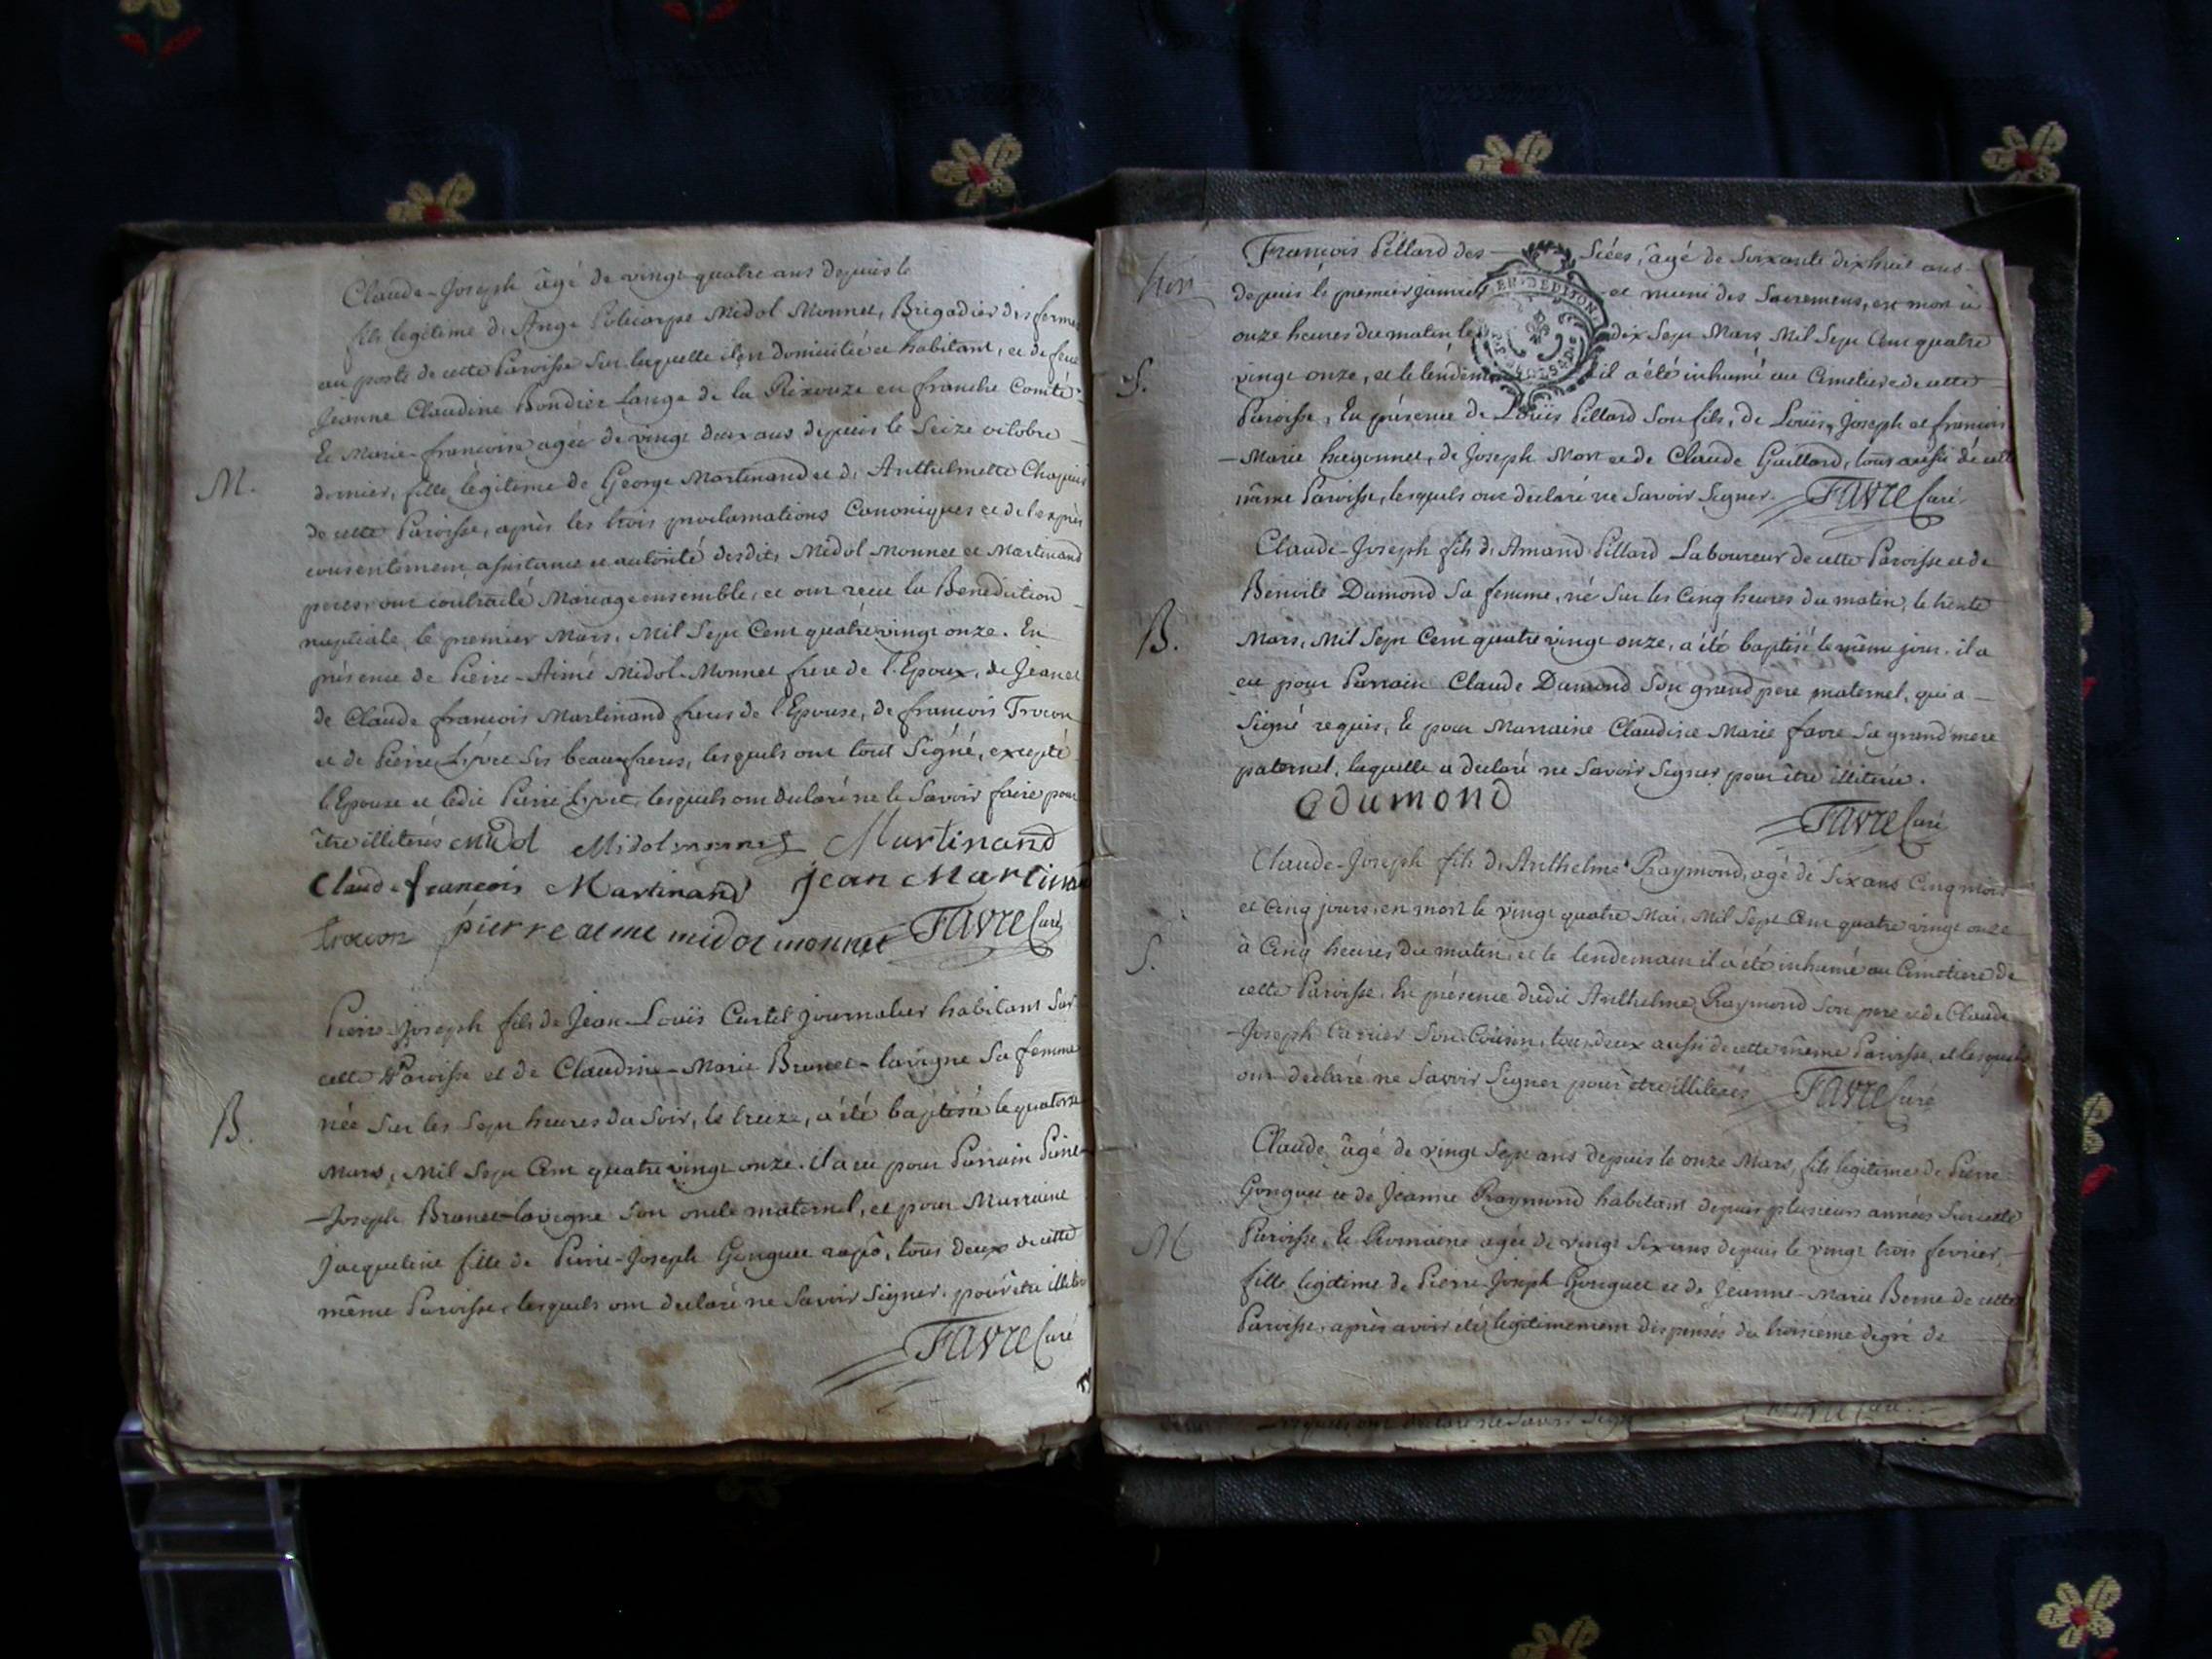 Claude-Joseph âgé de vingt quatre ans depuis le
fils legitime d'Ange Policarpe Midol Monnet, Brigadier des fermes
au poste de cette Paroisse sur laquelle il est domicilié et habitant, et de feue
Jeanne Claudine Bondier Lange de la Rixouze en franche Comté
Et Marie-françoise agée de vingt deux ans depuis le Seize octobre
M.
dernier, fille légitime de George Martinand et d'Anthelmette Chapuis
de cette Paroisse, après les trois proclamations Canoniques et de l'exprès
consentement, assistance et autorité desdits Midol Monnet et Martinand
peres, ont contracté Mariage ensemble, et ont recu la Benediction
nuptiale, le premier Mars, Mil Sept Cent quatre vingt onze. En
présence de Pierre-Aimé Midol-Monnet frere de l'Epoux, de Jean et
de Claude françois Martinand freres de l'Epouse, de françois Trocon
et de Pierre ses beaux freres, lesquels ont tous Signé, excepté
l'Epouse et ledit Pierre lesquels ont declaré ne le Savoir faire pour
être illiterés Midol Midol monnet Martinand
Claude francois Martinand jean Martinand
trocon pierre aime midol monnet FAVRE Curé
Pierre-Joseph fils de Jean-Louïs Curtet journalier habitant Sur
cette Paroisse et de Claudine-Marie Brunet-lavigne Sa femme
B.
née Sur les Sept heures du Soir, le treize, a été baptisé le quatorze
Mars, Mil Sept Cent quatre vingt onze. il a eu pour Parrain Pierre
-Joseph Brunet-lavigne Son oncle maternel, et pour Marraine
Jacqueline fille de Pierre-Joseph Gonguet tous deux de cette
même Paroisse, lesquels ont declaré ne Savoir Signer, pour être illiterés
FAVRE Curé
François Pillard des Siées, âgé de Soixante dix huit ans
depuis le premier janvier et muni des Sacremens, est mort à
EN DEDITION
onze heures du matin le dix Sept Mars Mil Sept Cent quatre
S.
vingt onze, et le lendemain il a été inhumé au Cimetiere de cette
Paroisse, En présence de Louïs Pillard Son fils, de Louïs, Joseph et françois
-Marie hugonnet, de Joseph Mort et de Claude Gaillard, tous aussi de cette
même Paroisse, lesquels ont declaré ne Savoir Signer. FAVRE Curé
Claude-Joseph fils d'Amand Pillard Laboureur de cette Paroisse et de
Benoite Dumond Sa femme, né Sur les Cinq heures du matin, le trente
B.
Mars, Mil Sept Cent quatre vingt onze, a été baptisé le même jour. il a
eu pour Parrain Claude Dumond Son grand pere maternel, qui a
Signé requis, Et pour Marraine Claudine Marie favre Sa grand'mere
paternel, laquelle a declaré ne Savoir Signer pour être illiterée.
Cdumond
FAVRE Curé
Claude-Joseph fils d'Anthelme Raymond, agé de Six ans Cinq mois
et Cinq jours, est mort le vingt quatre Mai, Mil Sept Cent quatre vingt onze
S.
à Cinq heures du matin, et le lendemain il a été inhumé au Cimetiere de
cette Paroisse, En présence dudit Anthelme Raymond Son pere et de Claude
-Joseph Carrier Son Cousin, tous deux aussi de cette même Paroisse, et lesquels
ont declaré ne Savoir Signer pour être illiterés FAVRE Curé
Claude, âgé de vingt Sept ans depuis le onze Mars, fils légitime de Pierre
Gonguet et de Jeanne Raymond habitant depuis plusieurs années Sur cette
M
Paroisse, Et Romaine agée de vingt Six ans depuis le vingt trois fevrier,
fille legitime de Pierre-Joseph Gonguet et de Jeanne-Marie Berne de cette
Paroisse, après avoir été légitimement dispensés du troisième degré de
lesquels ont declaré ne Savoir Signer